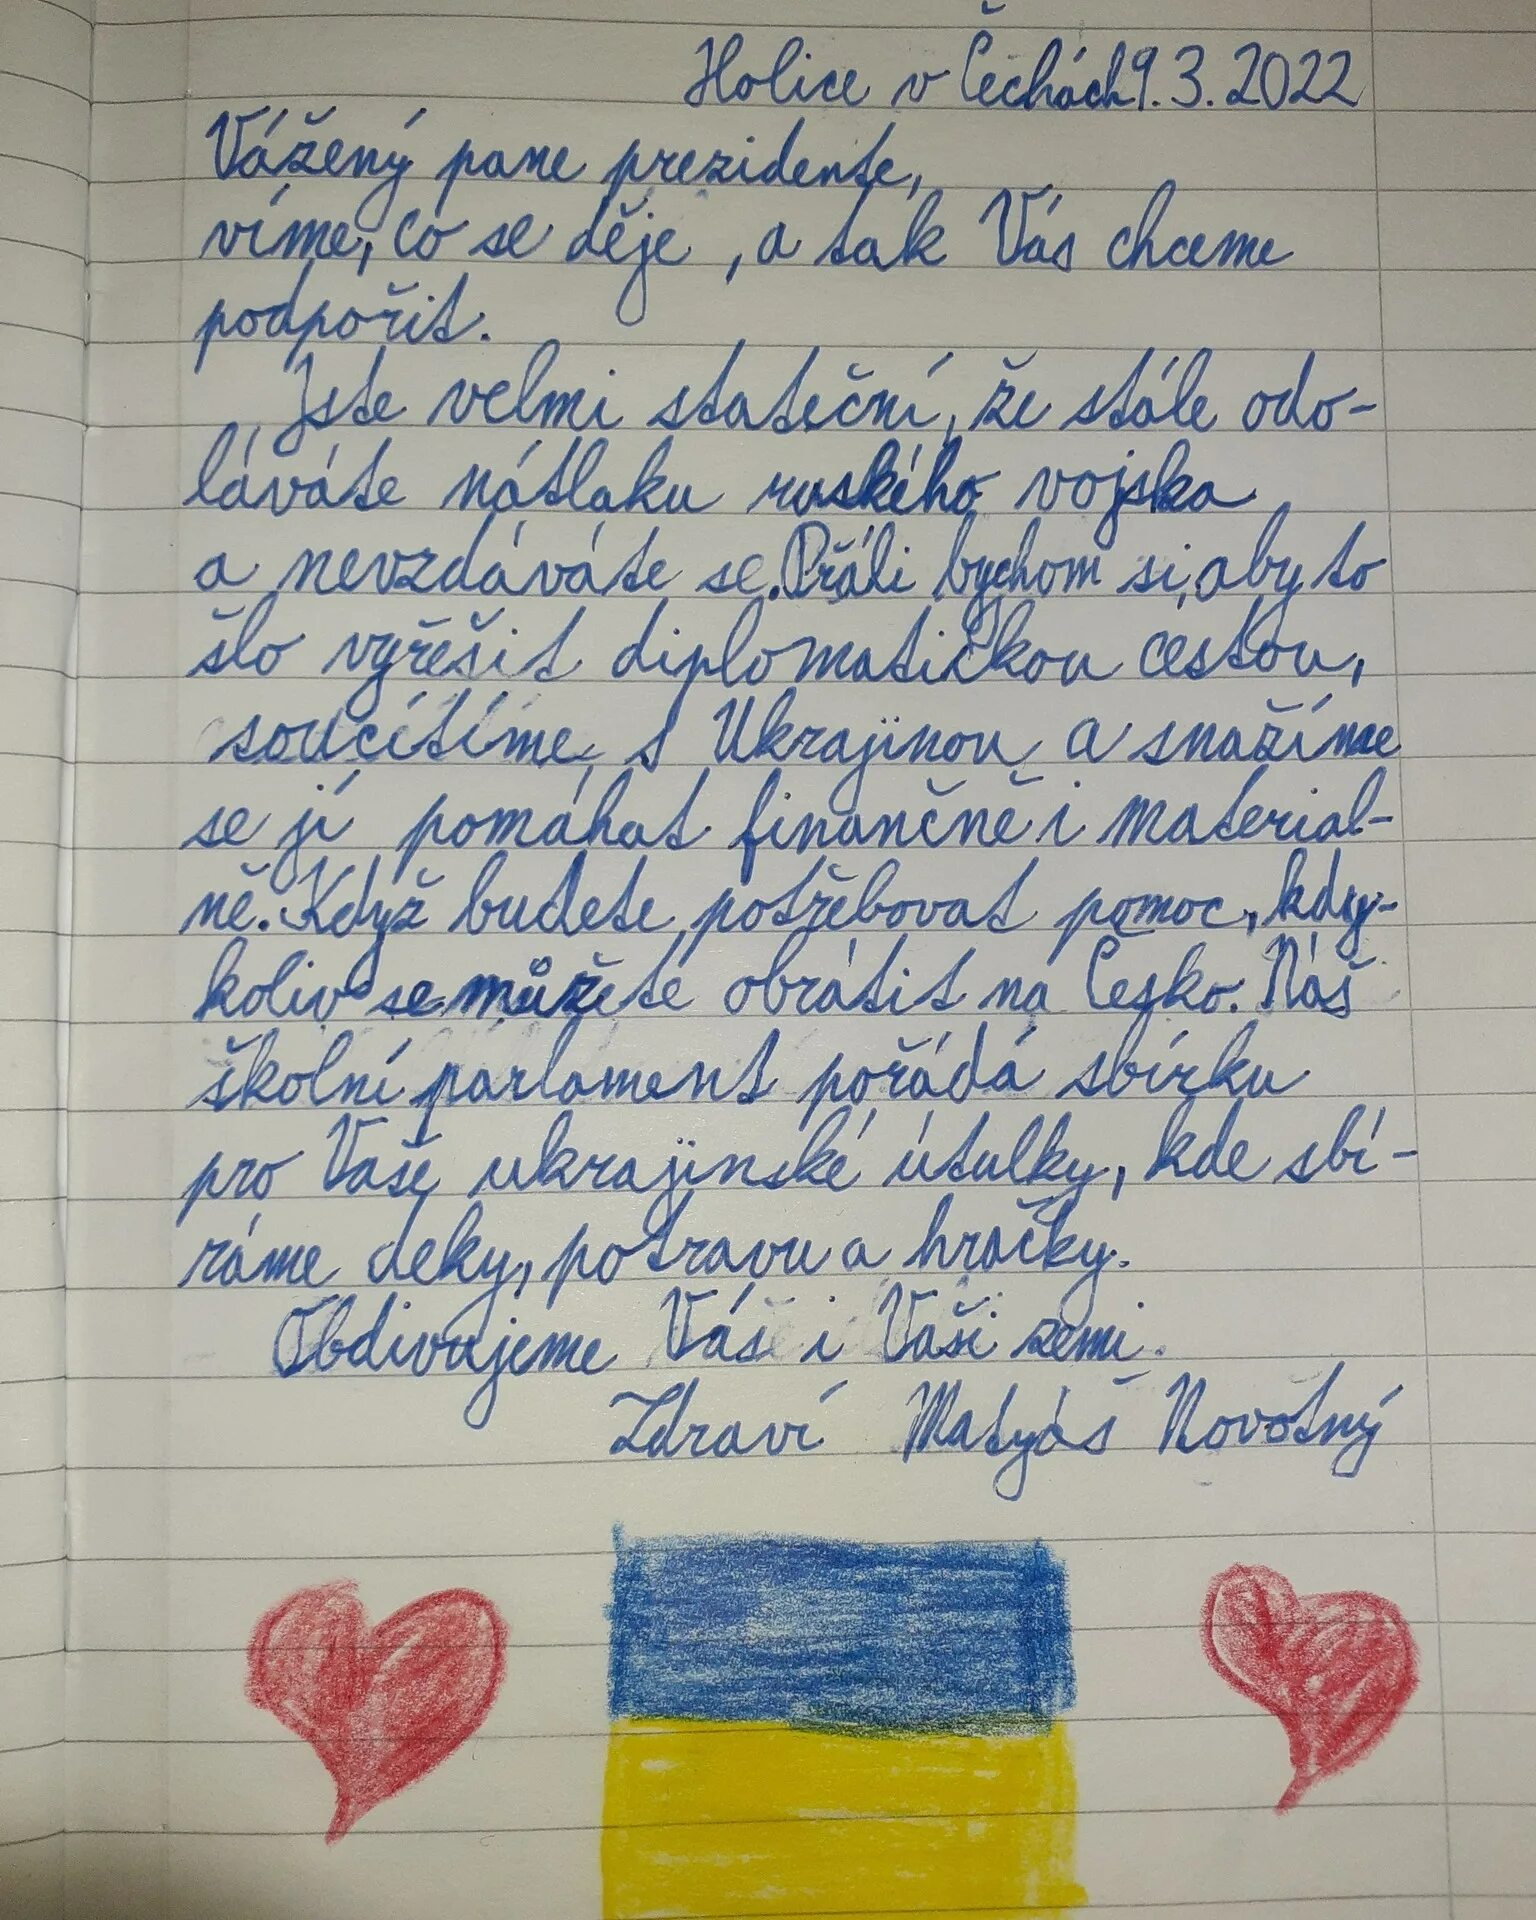 Holice v Čechách 9.3.2022
Vážený pane prezidente,
víme, co se děje, a tak Vás chceme
podpořit.
Jste velmi stateční, že stále odo-
láváte nátlaku ruského vojska
a nevzdáváte se. Přáli bychom si, aby to
šlo vyřešit diplomatičkou cestou,
soucítíme s Ukrajinou a snažíme
se jí pomáhat finančně i material-
ně. Když budete potřebovat pomoc, kdy-
koliv se můžete obrátit na Česko. Náš
školní parlament pořádá sbírku
pro Vaše ukrajinské útulky, kde sbí-
ráme deky, potravu a hračky.
Obdivujeme Vás i Vaši zemi.
Zdraví Matyáš Novotný